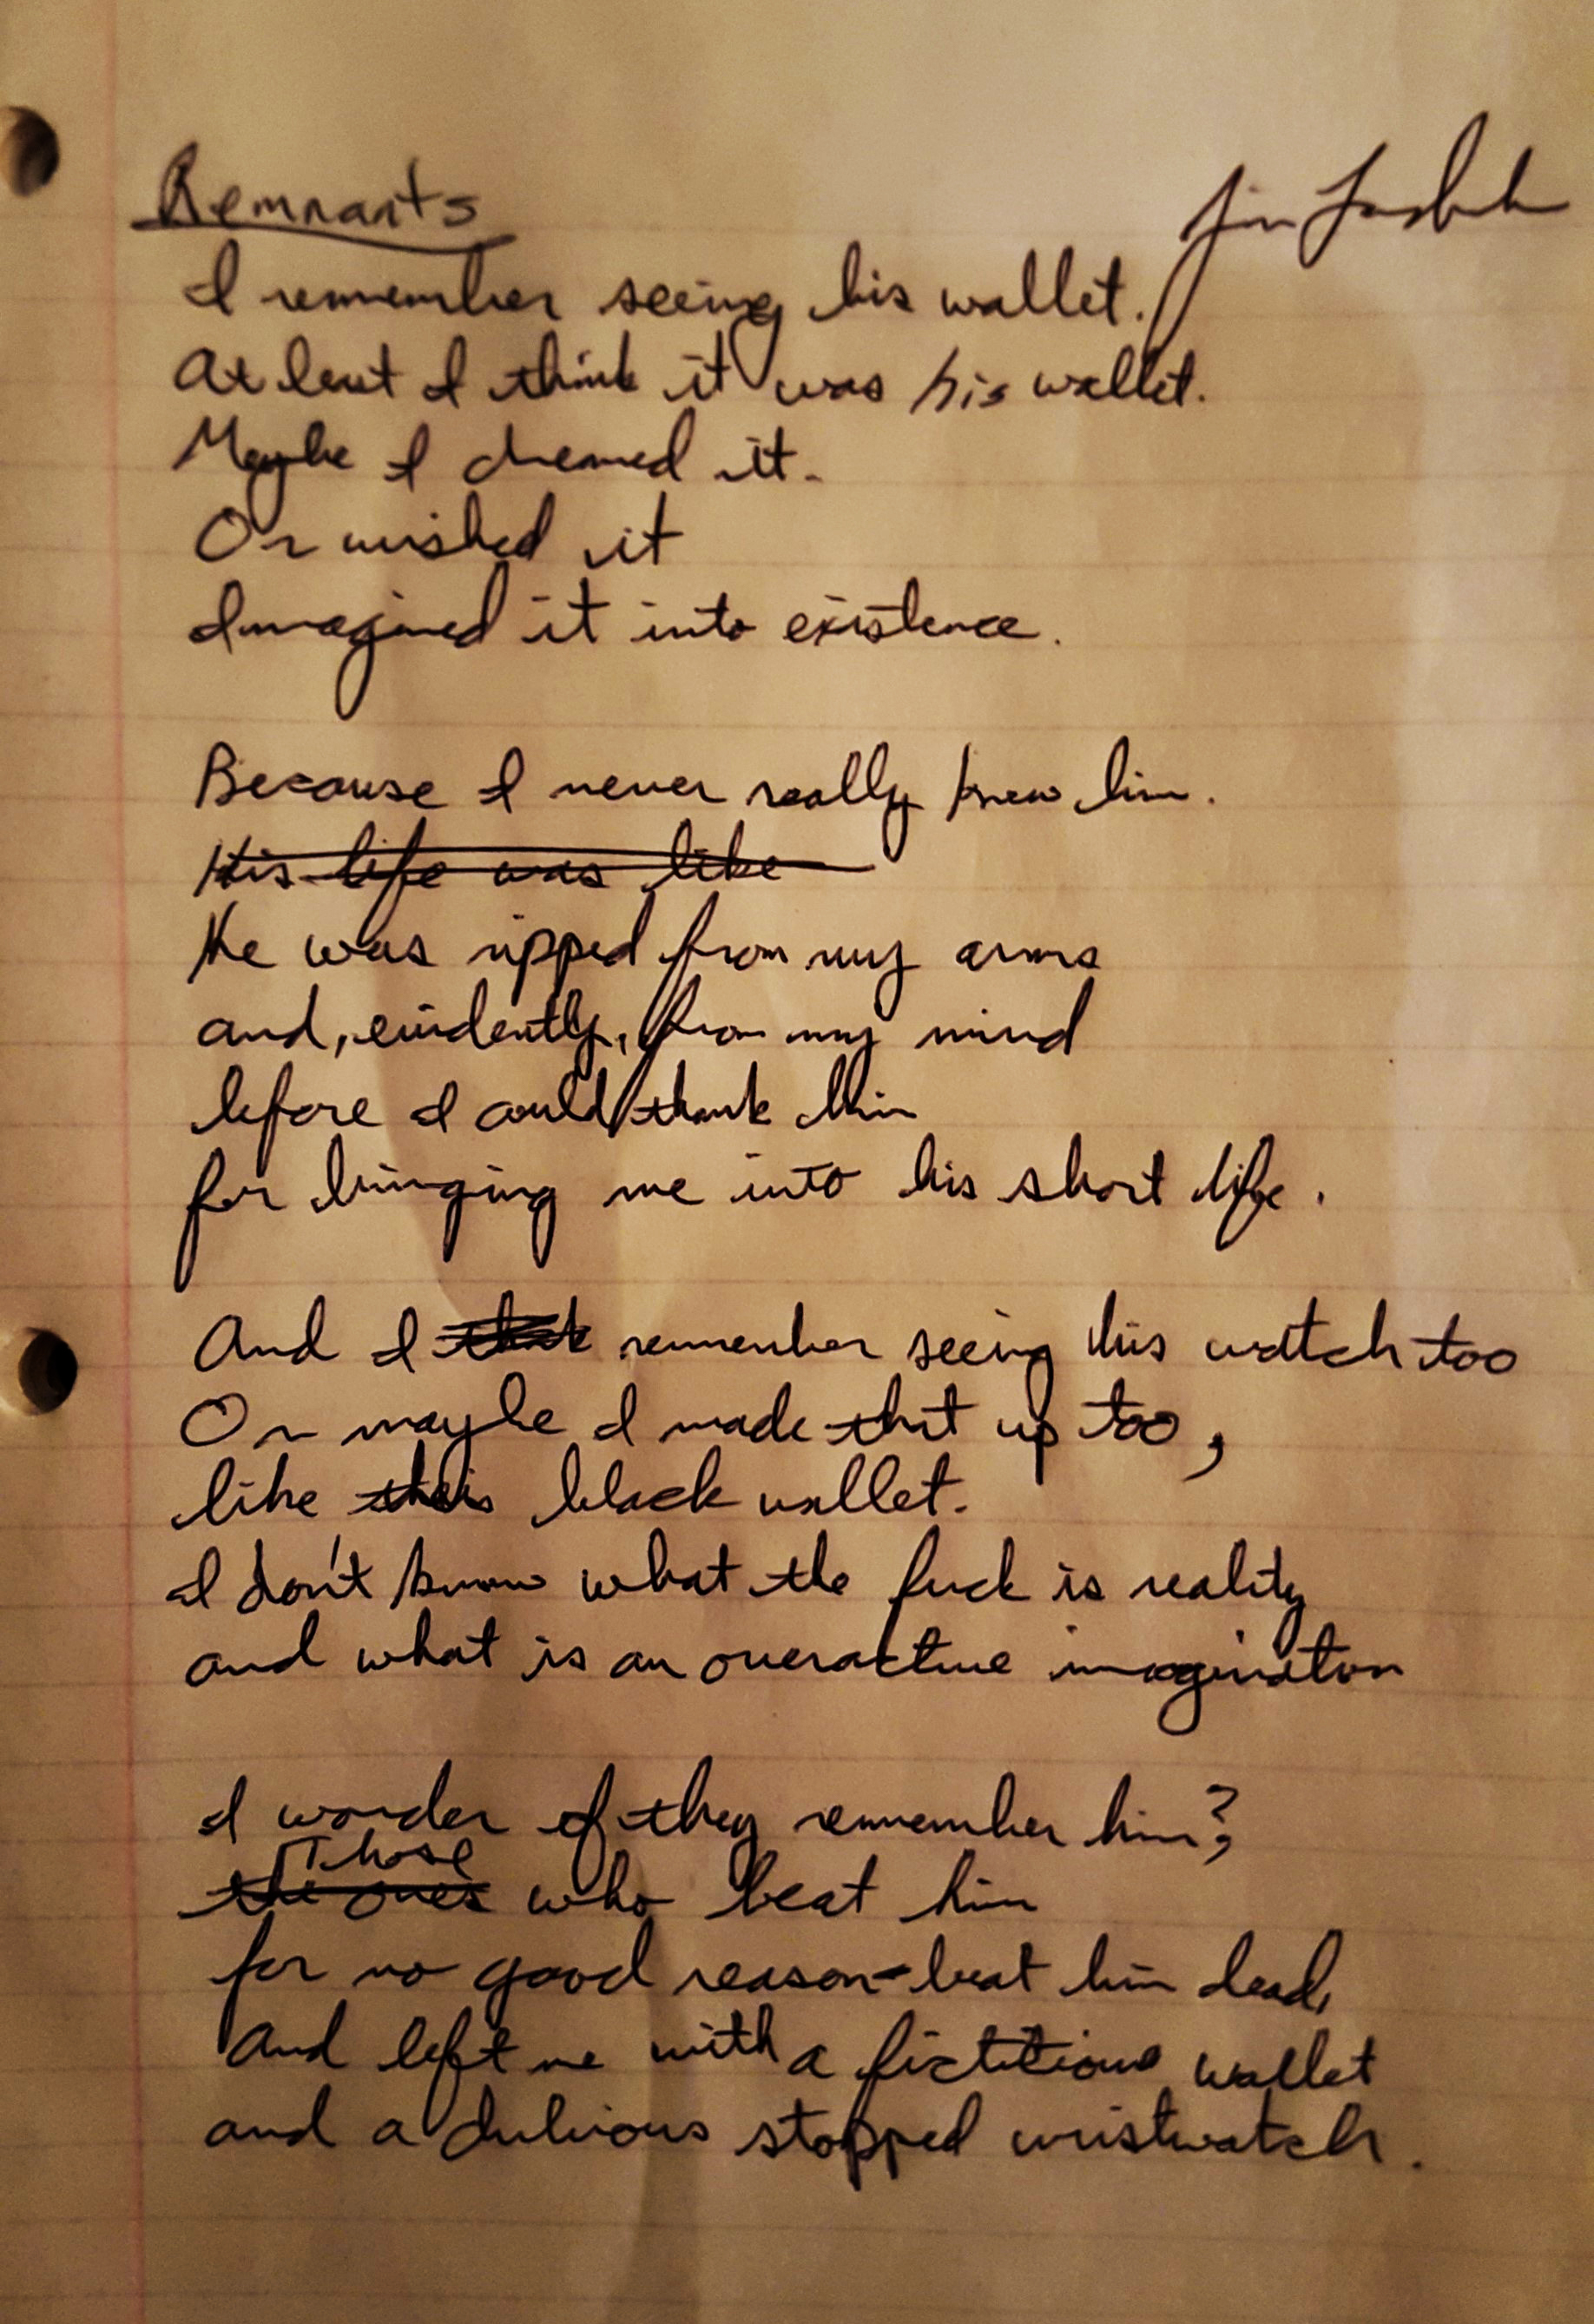 Remnants
I remember seeing his wallet.
At least I think it was his wallet.
Maybe I dreamed it.
Or wished it
Imagined it into existence.
Because I never really knew him.
His life was like
He was ripped from my arms
and, evidently, from my mind
before I could thank him
for bringing me into his short life.
And I think remember seeing his watch too
Or maybe I made that up too,
like his black wallet.
I don't know what the fuck is reality
and what is an overactive imagination
I wonder if they remember him?
Those
the ones who beat him
for no good reason-beat him dead,
And left me with a fictitious wallet
and a dubious stopped wristwatch.